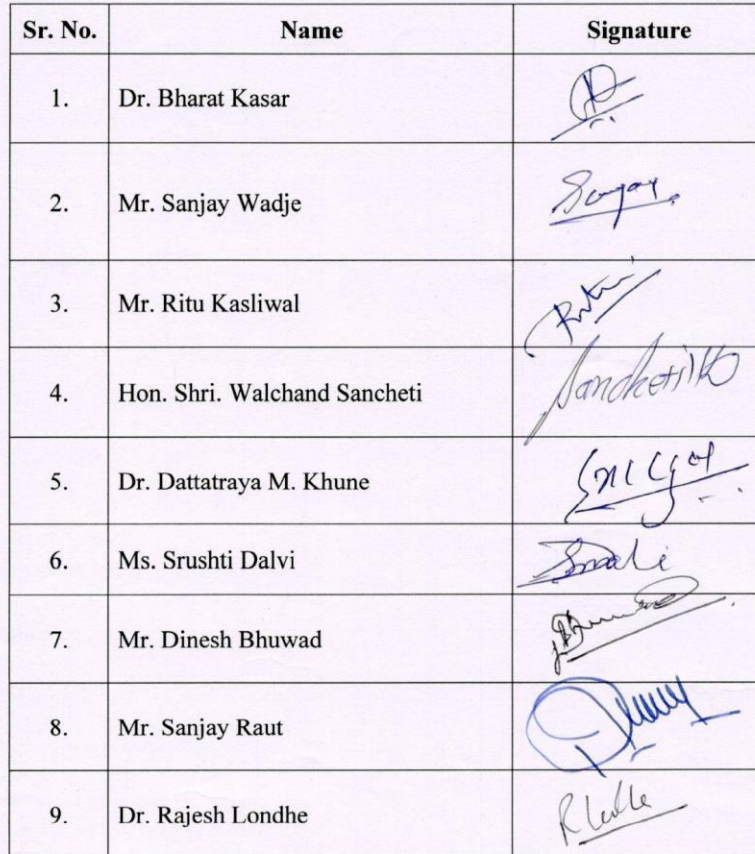 Sr. No. Name Signature
1. Dr. Bharat Kasar
2. Mr. Sanjay Wadje Sanjay
3. Mr. Ritu Kasliwal Ritu
4. Hon. Shri. Walchand Sancheti
5. Dr. Dattatraya M. Khune
6. Ms. Srushti Dalvi
7. Mr. Dinesh Bhuwad
8. Mr. Sanjay Raut
9. Dr. Rajesh Londhe